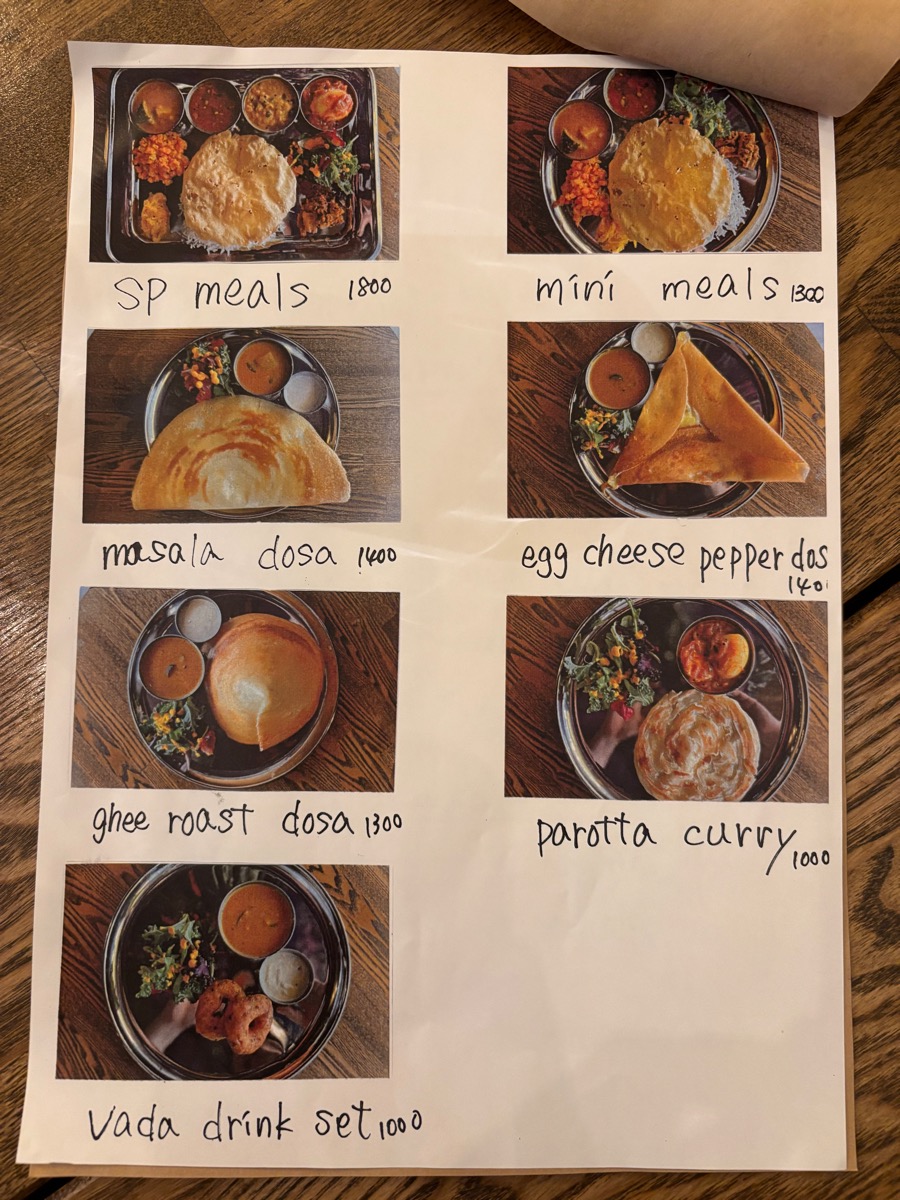 SP meals 1800
mini meals 1300
masala dosa 1400
egg cheese pepper dos
140
ghee roast dosa 1300
parotta curry 1000
vada drink set 1000